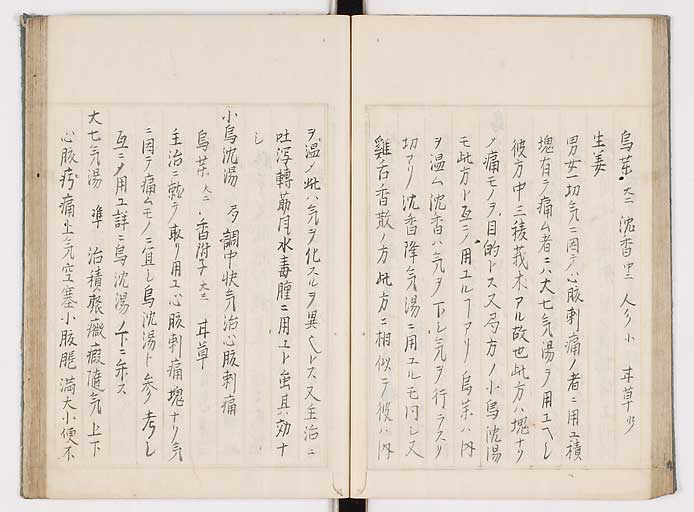 烏薬大 沈香中 人参小 甘草少
生姜
男女一切気ニ因テ心腹刺痛ノ者ニ用ユ積
塊有テ痛ム者ニハ大七気湯ヲ用ユヘシ
彼方中ニ稜莪朮アル故也此方ハ塊ナク
ノ痛モノヲ目的トス又局方ノ小烏沈湯
モ此方ト互ニ用ユルフアリ烏薬ハ内
ヲ温ム沈香ハ気ヲ下シ気ヲ行ラスノ
切アリ沈香降気湯ニ用ユルモ同シ又
雞舌香散ノ方此方ニ相似テ彼ハ内
ヲ温メ此ハ気ヲ化スルヲ異ヘトス又主治ニ
吐瀉轉筋水毒腫ニ用ユト虽其効ナ
シ
小烏沈湯 局 調中快気治心腹刺痛
烏薬大 香附子大 甘草
主治ニ就テ取リ用ユ心腹刺痛塊ナク気
ニ因テ痛ムモノニ宜シ烏沈湯ト参考シ
互ニ用ユ詳ニ烏沈湯ノ下ニ弁ス
大七気湯 準 治積聚癥瘕随気上下
心腹㽲痛上気窒塞小腹脹満大小便不